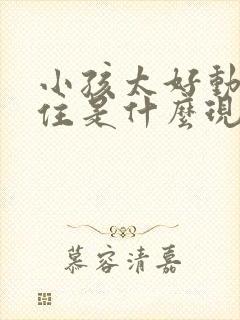 小孩太好動
住是什麼現
慕容清嘉